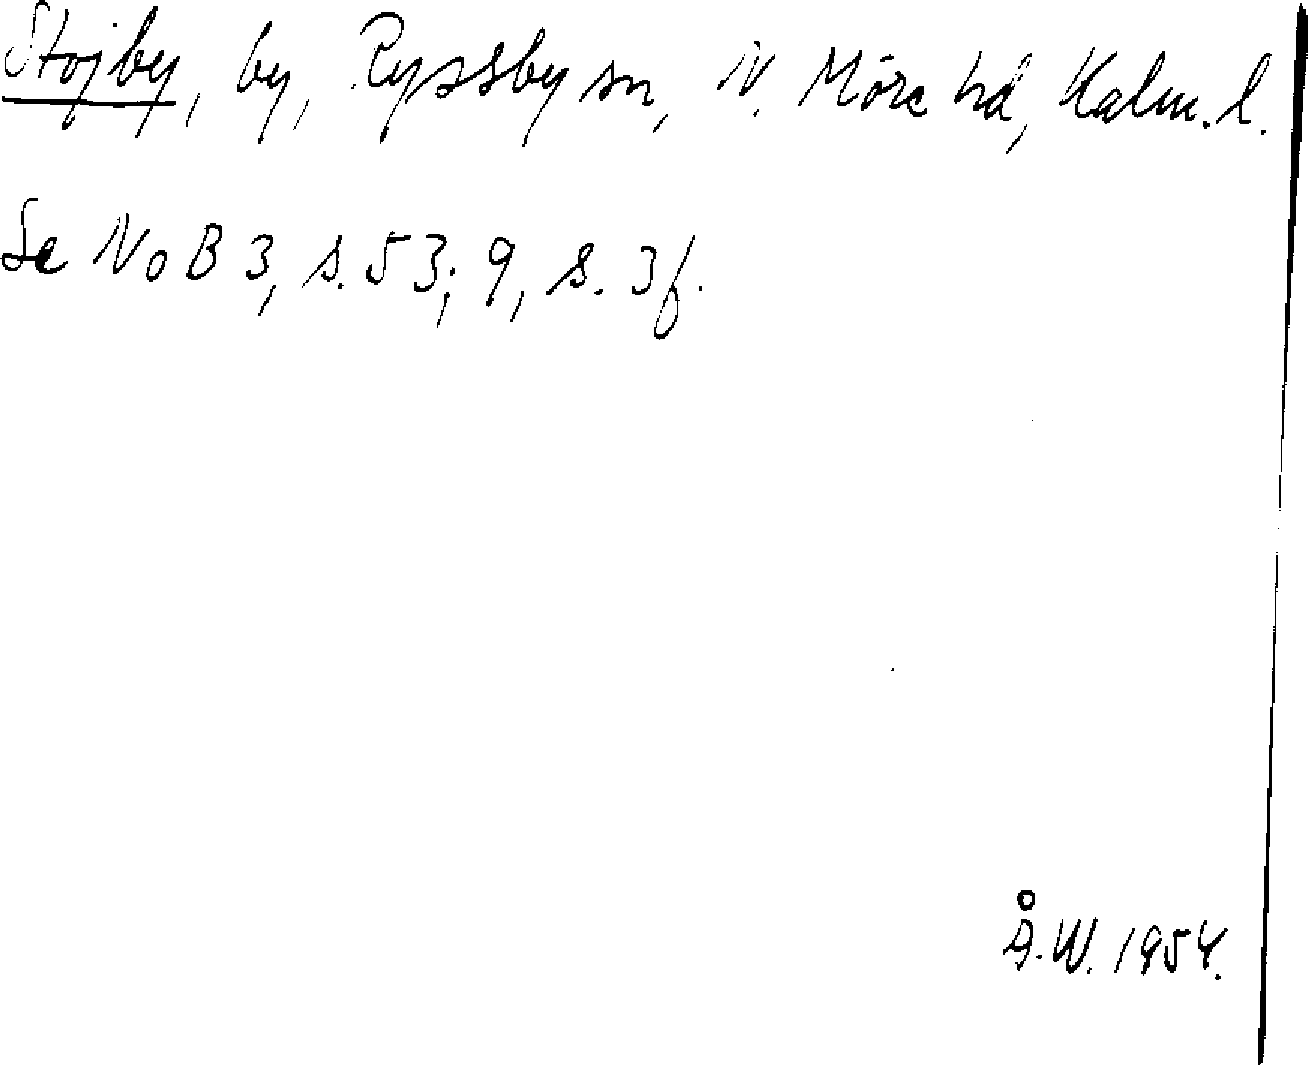 Stojby, by, Ryssby sn, N. Möre hd, Kalm. l.
Se NoB 3, s. 53; 9, s. 3f.
Å.W. 1954.